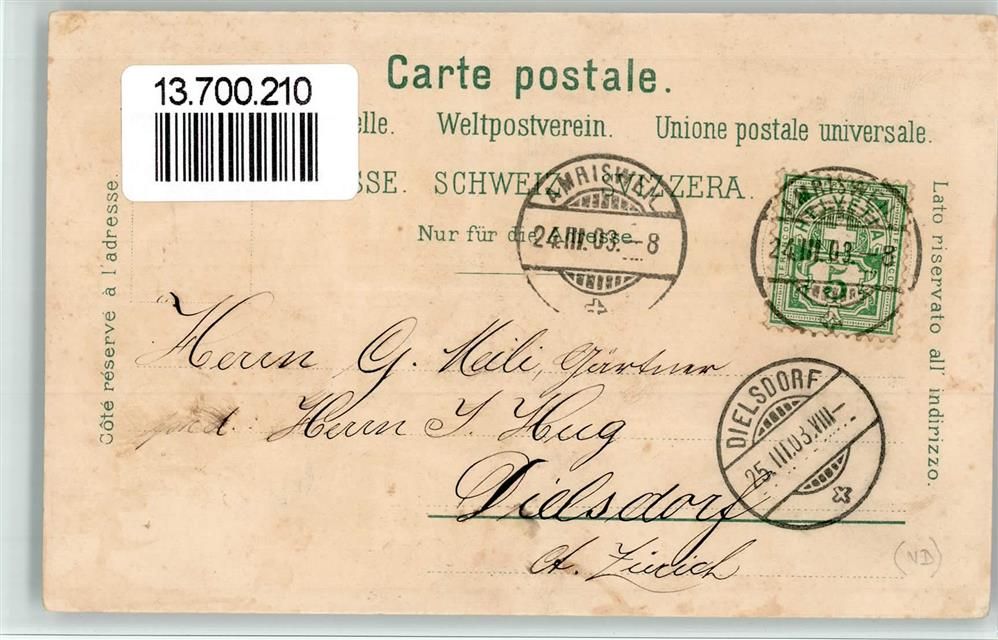 13.700.210
Carte postale.
elle. Weltpostverein. Unione postale universale.
SSE. SCHWEIZ. SVIZZERA.
Nur für die Adresse
Côté réservé à l'adresse.
Lato riservato all' indirizzo.
AMRISWEIL
24.III.03.-8
AMRISWEIL
24.III.03.-8
HELVETIA
5
Herrn G. Meili, Gärtner
Herrn J. Hug
Dielsdorf
Ct. Zürich
DIELSDORF
25.III.03.VIII-
(ND)